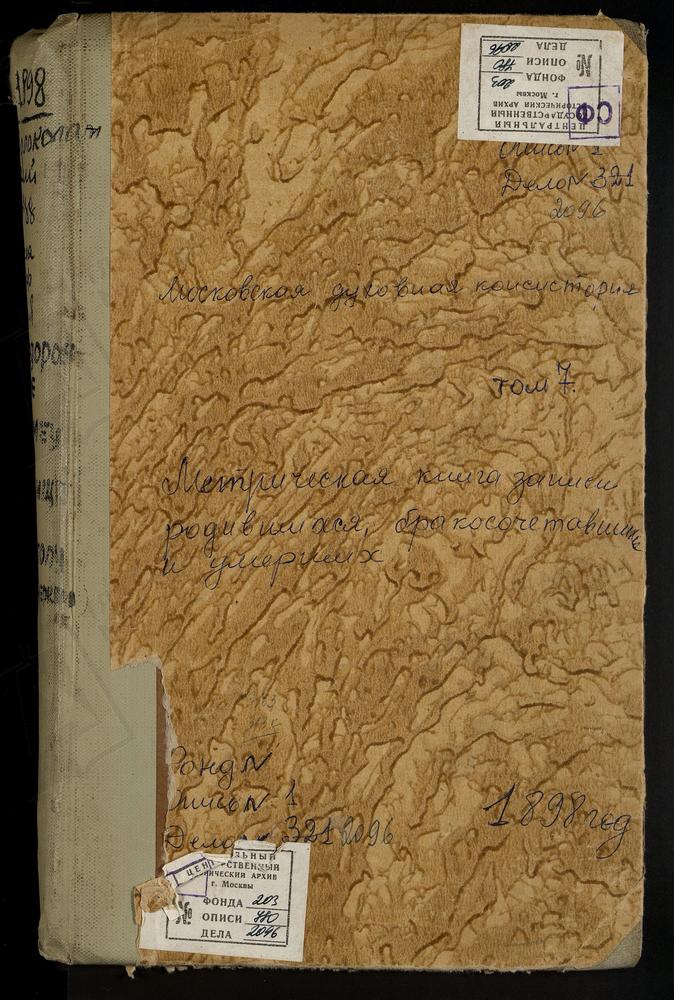 1898
ЦЕНТРАЛЬНЫЙ
ГОСУДАРСТВЕННЫЙ
ИСТОРИЧЕСКИЙ АРХИВ
г. Москвы
№ ФОНДА 203
ОПИСИ 780
ДЕЛА 2096
ФО
Опись 1
Дело № 321
2096
Московская духовная консистория
том 7.
Метрическая книга записи
родившихся, бракосочетавшихся
и умерших
Фонд №
Опись № 1
Дело № 321 2096
1898 год
ЦЕН
ЛЬНЫЙ
РСТВЕННЫЙ
ИЧЕСКИЙ АРХИВ
г. Москвы
№ ФОНДА 203
ОПИСИ 780
ДЕЛА 2096